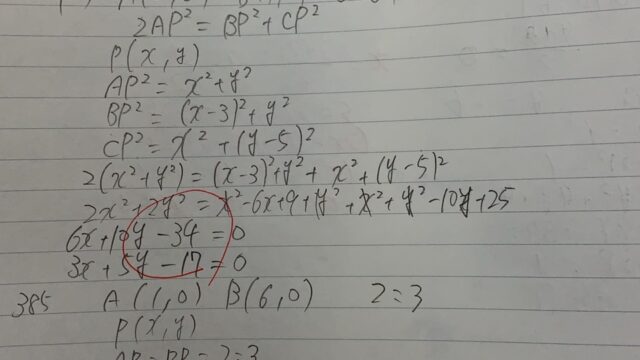 2AP² = BP² + CP²
P(x, y)
AP² = x² + y²
BP² = (x-3)² + y²
CP² = x² + (y-5)²
2(x² + y²) = (x-3)² + y² + x² + (y-5)²
2x² + 2y² = x² - 6x + 9 + y² + x² + y² - 10y + 25
6x + 10y - 34 = 0
3x + 5y - 17 = 0
385 A(1, 0) B(6, 0) 2:3
P(x, y)
AP:BP = 2:3